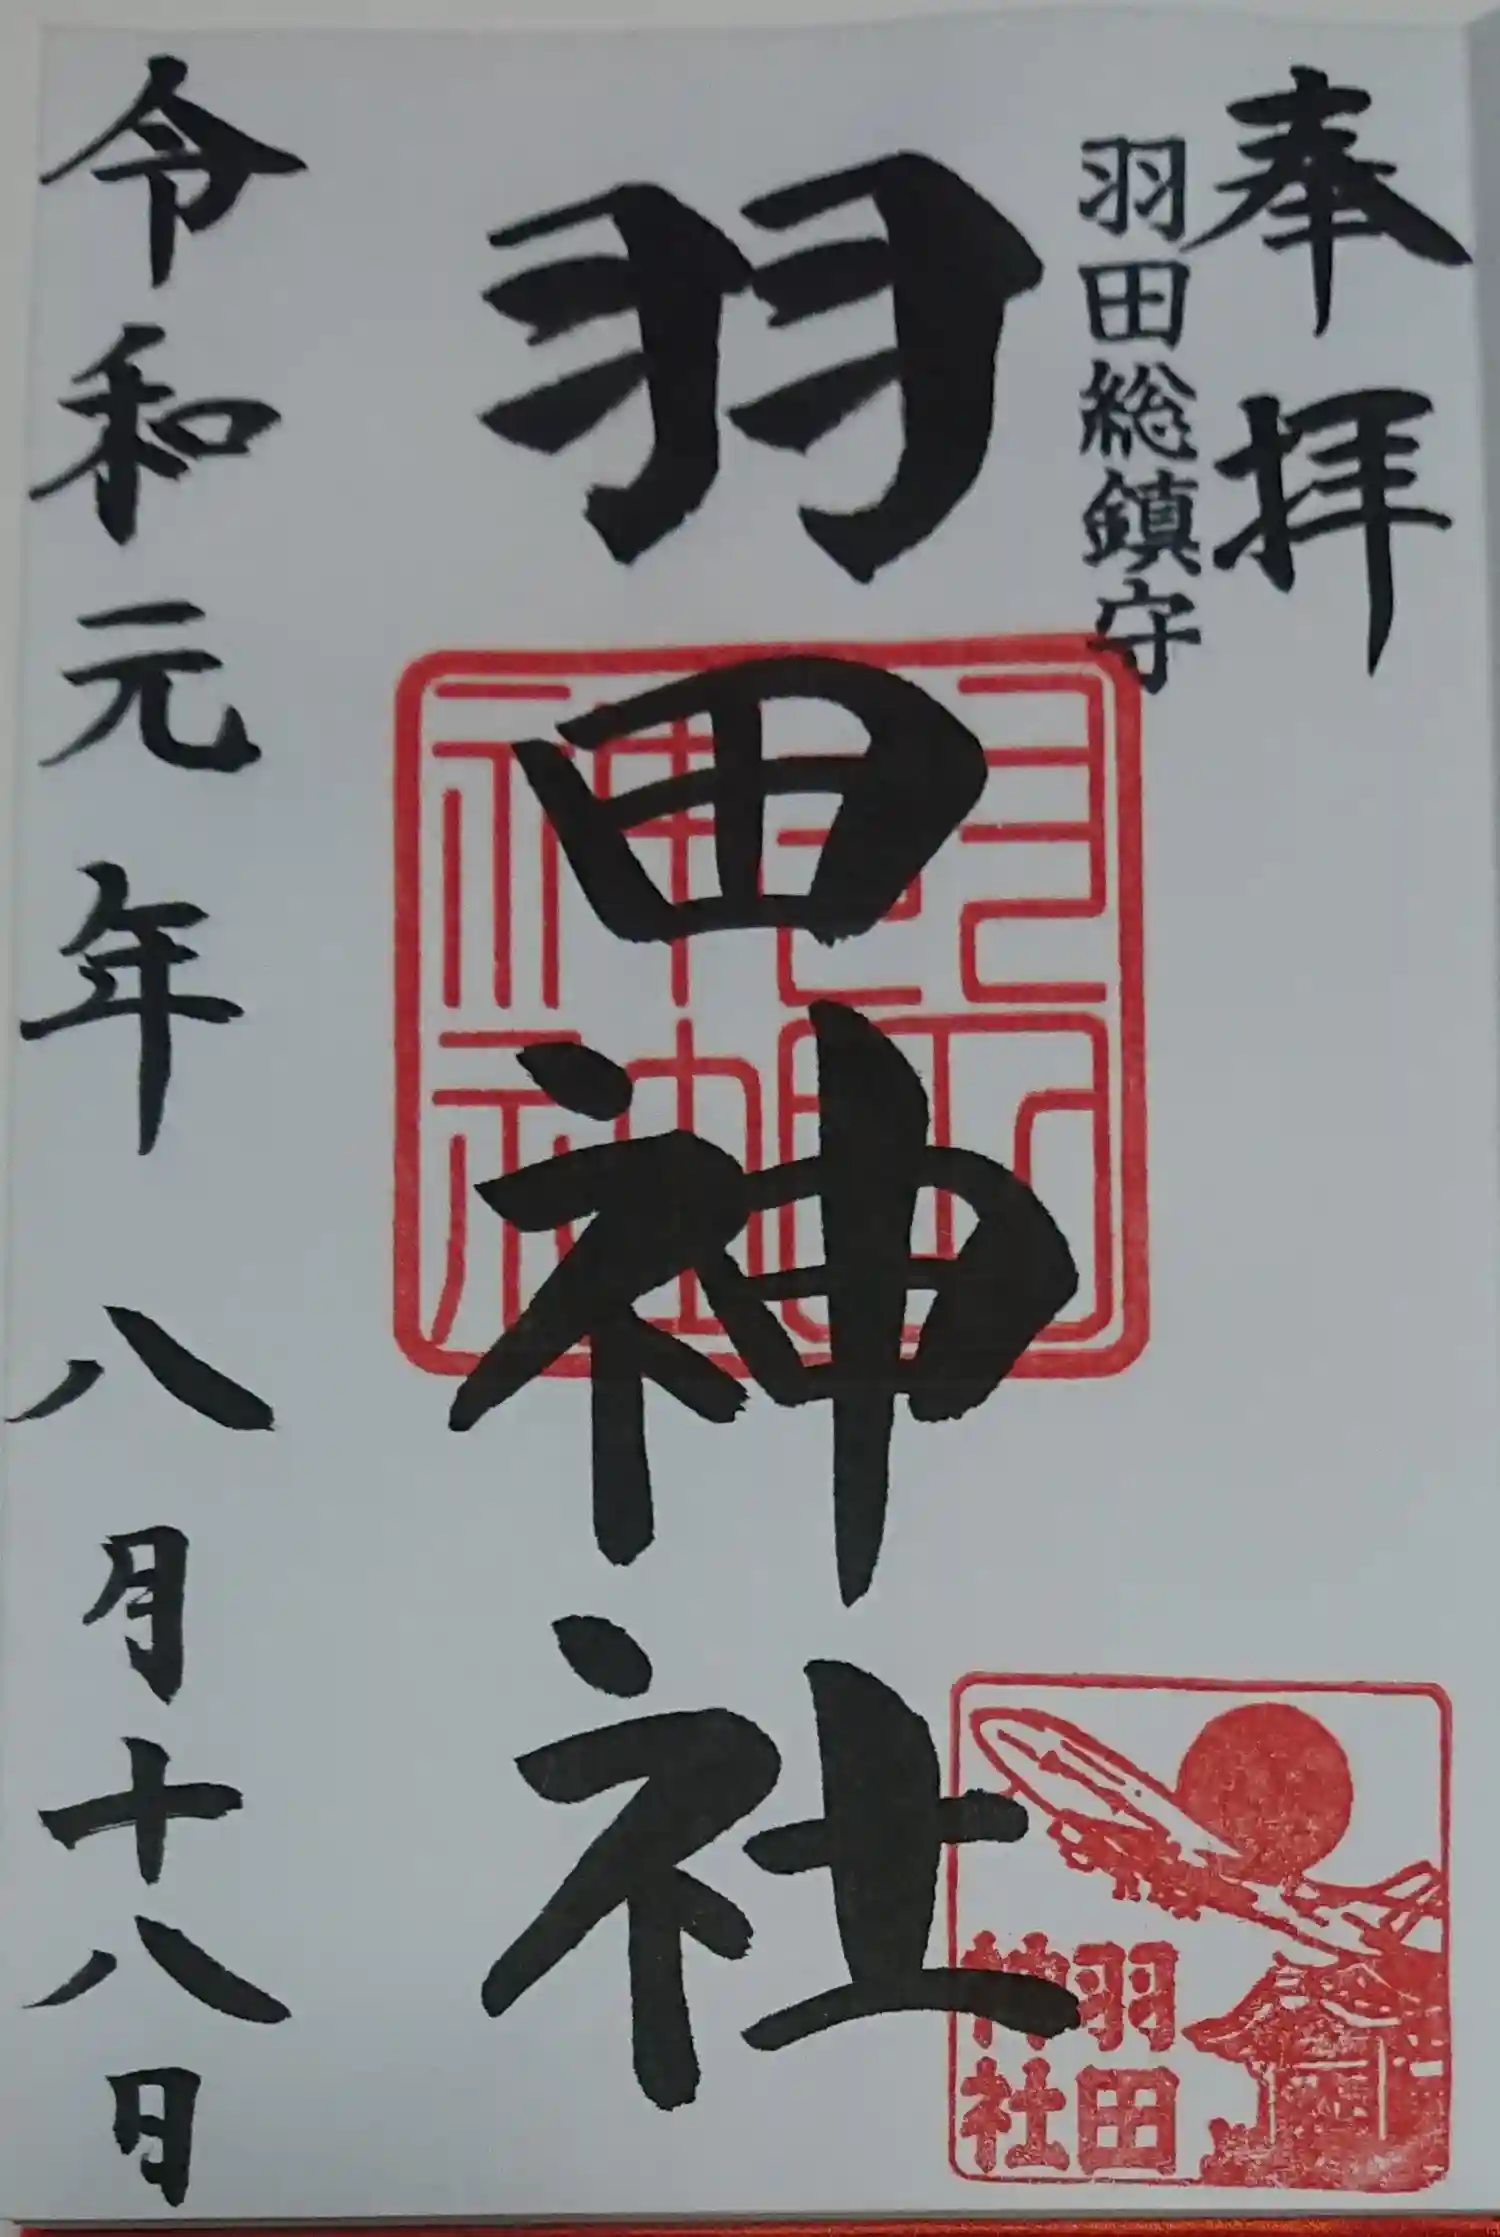 奉拝
羽田総鎮守
羽田神社
令和元年 八月十八日
羽田
神社